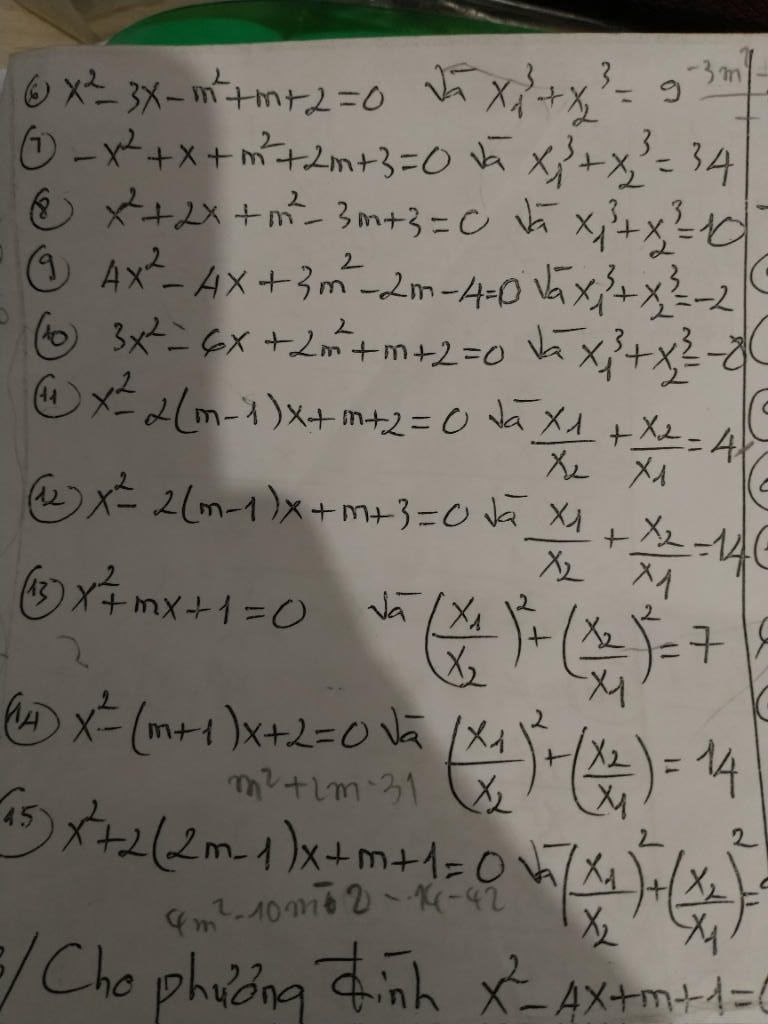 ⑥ x² - 3x - m² + m + 2 = 0 và x₁³ + x₂³ = 9 -3m²
⑦ -x² + x + m² + 2m + 3 = 0 và x₁³ + x₂³ = 34
⑧ x² + 2x + m² - 3m + 3 = 0 và x₁³ + x₂³ = 10
⑨ 4x² - 4x + 3m² - 2m - 4 = 0 và x₁³ + x₂³ = -2
⑩ 3x² - 6x + 2m² + m + 2 = 0 và x₁³ + x₂³ = -8
⑪ x² - 2(m-1)x + m + 2 = 0 và x₁/x₂ + x₂/x₁ = 4
⑫ x² - 2(m-1)x + m + 3 = 0 và x₁/x₂ + x₂/x₁ = 14
⑬ x² + mx + 1 = 0 và (x₁/x₂)² + (x₂/x₁)² = 7
2
⑭ x² - (m+1)x + 2 = 0 và (x₁/x₂)² + (x₂/x₁) = 14
m² + 2m - 31
⑮ x² + 2(2m-1)x + m + 1 = 0 và (x₁/x₂)² + (x₂/x₁)² =
4m² - 10m
/ Cho phường đình x² - 4x + m + 1 = 0